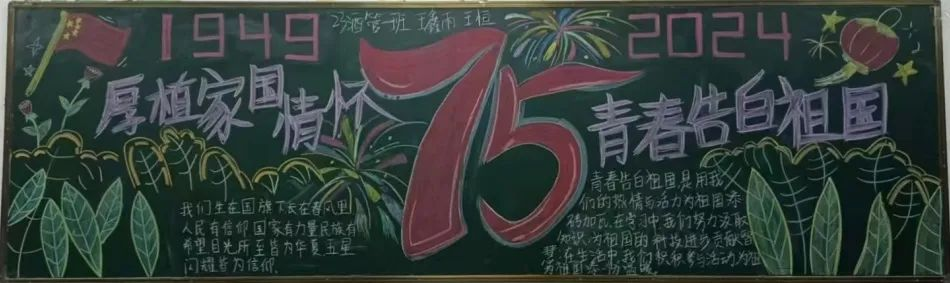 1949
23酒管一班
75
2024
厚植家国情怀
青春告白祖国
我们生在国旗下长在春风里
人民有信仰国家有力量民族有
希望目光所至皆为华夏五星
闪耀皆为信仰.
青春告白祖国是用我
们的热情与活力为祖国添
砖加瓦.在学习中我们努力汲取
知识,为祖国的科技进步贡献智
慧.在生活中,我们积极参与活动,为祖